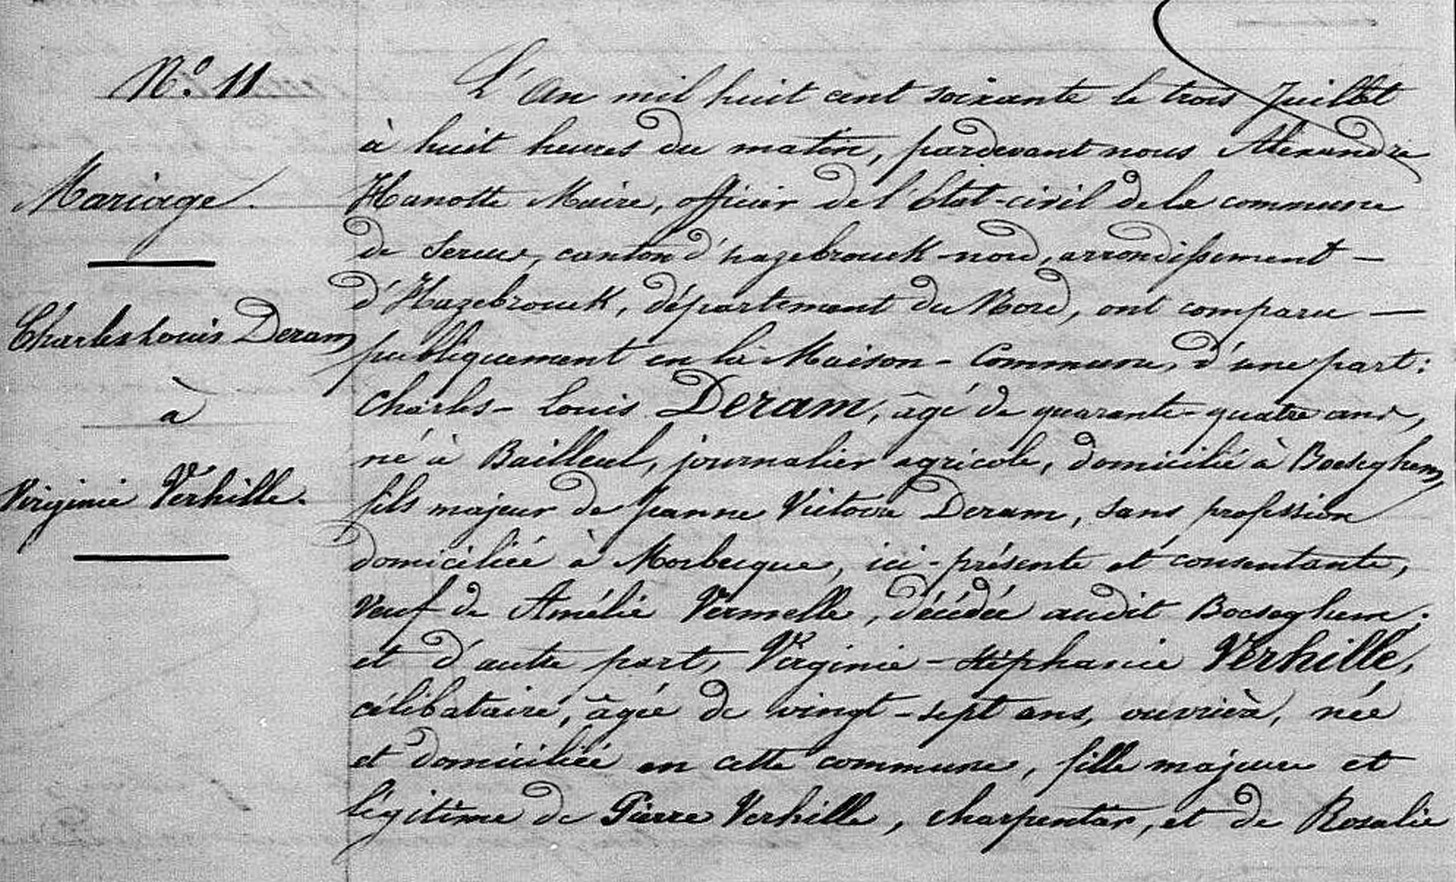 N.º 11
Mariage.
Charles Louis Deram
à
Virginie Verhille.
L'An mil huit cent soixante le trois Juillet
à huit heures du matin, pardevant nous Alexandre
Hanotte Maire, officier de l'état-civil de la commune
de Sercus, canton d'hazebrouck-nord, arrondissement —
d'Hazebrouck, département du Nord, ont comparu —
publiquement en la Maison-Commune, d'une part:
Charles-Louis Deram, âgé de quarante-quatre ans,
né à Bailleul, journalier agricole, domicilié à Boeseghem,
fils majeur de Jeanne Victoire Deram, sans profession
domiciliée à Morbecque, ici-présente et consentante,
Veuf de Amélie Vermelle, décédée audit Boeseghem;
et d'autre part, Virginie-Stéphanie Verhille,
célibataire, âgée de vingt-sept ans, ouvrière, née
et domiciliée en cette commune, fille majeure et
légitime de Pierre Verhille, charpentier, et de Rosalie